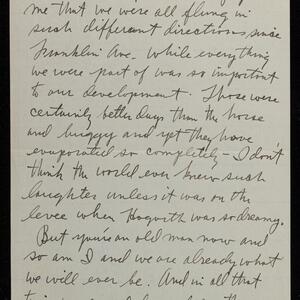 me that we were all flung in
such different directions, since
Franklin Ave. while everything
we were part of was so important
to our development. Those were
certainly better days than the horse
and buggy and yet they have
evaporated so completely - I don't
think the world ever knew such
laughter unless it was on the
levee when Hogwith was so dreamy.
But you're an old man now and
so am I and we are already what
we will ever be. And in all that